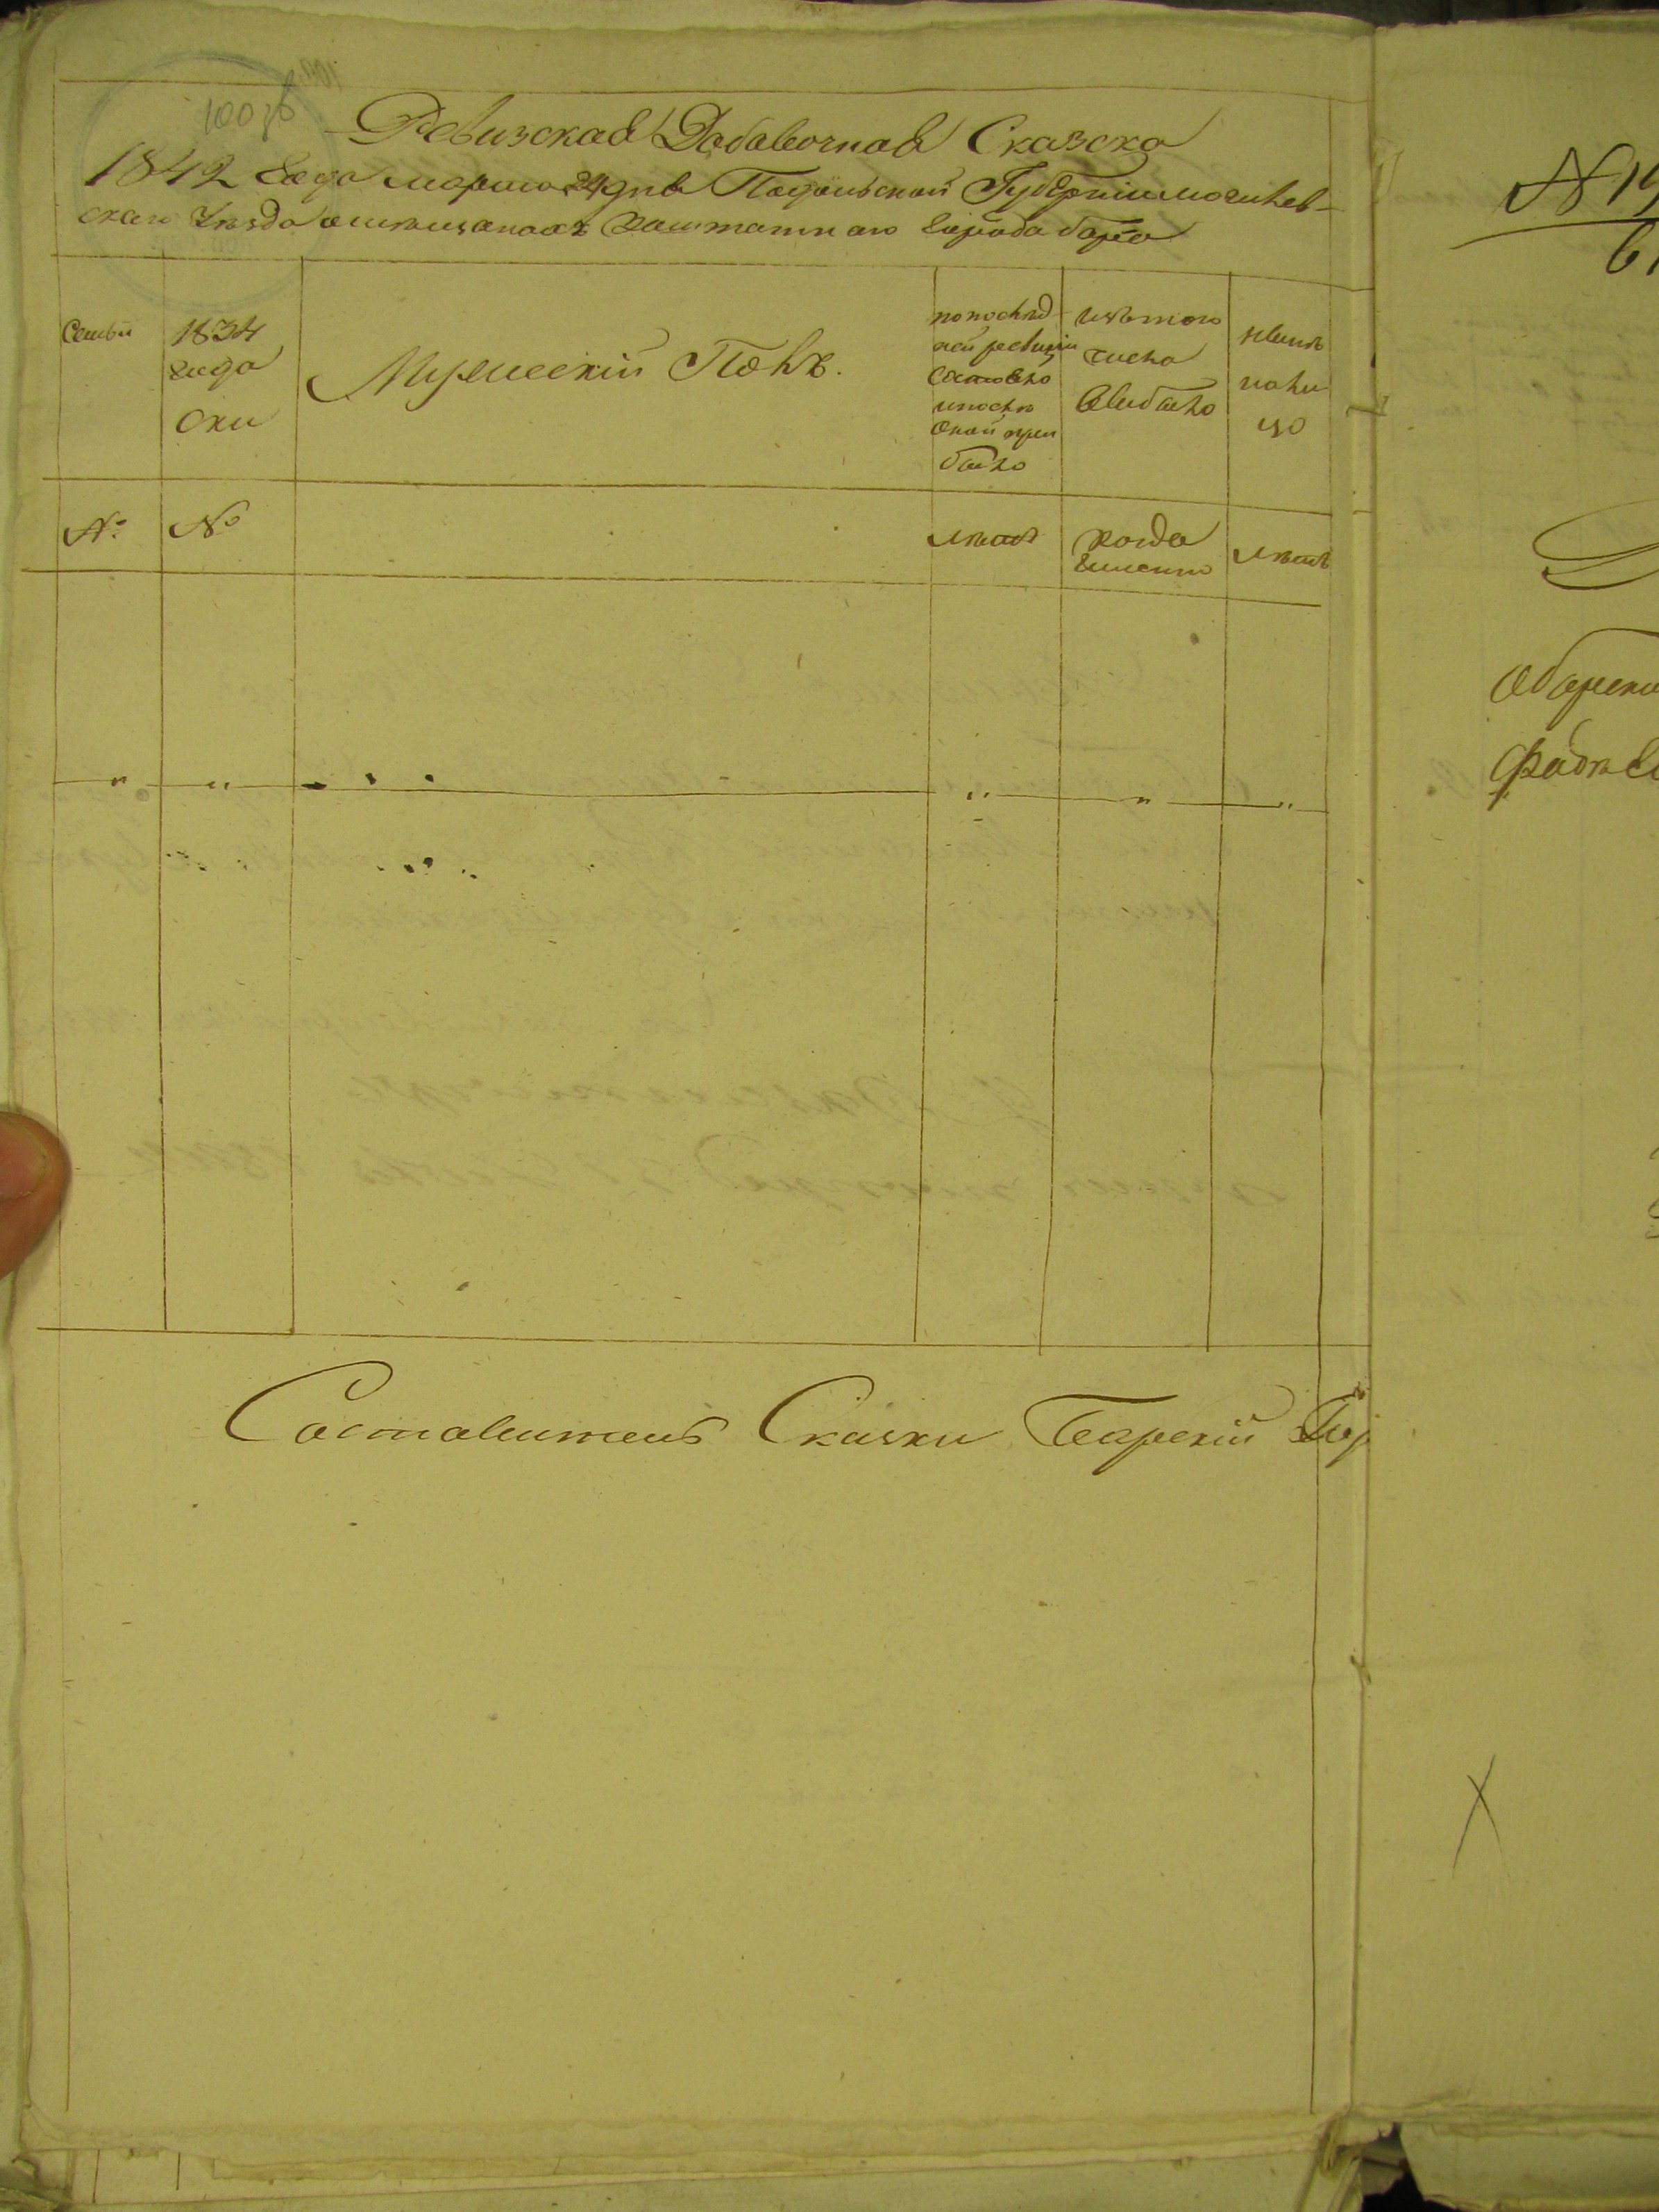 100 зв
Ревизская Добавочная Сказска
1842 Года марта 24 дня Подольской Губерніи могилев-
скаго Уезда о мещанахъ заштатнаго города бара
Семьи
1834
года
ски
Мужескій Полъ.
по послед
ней ревизіи
состояло
и после
оной при
было
изътого
числа
выбыло
ныне
нали
цо
№
№
летъ
когда
именно
летъ
Составитель Сказки Барскій
№ 19